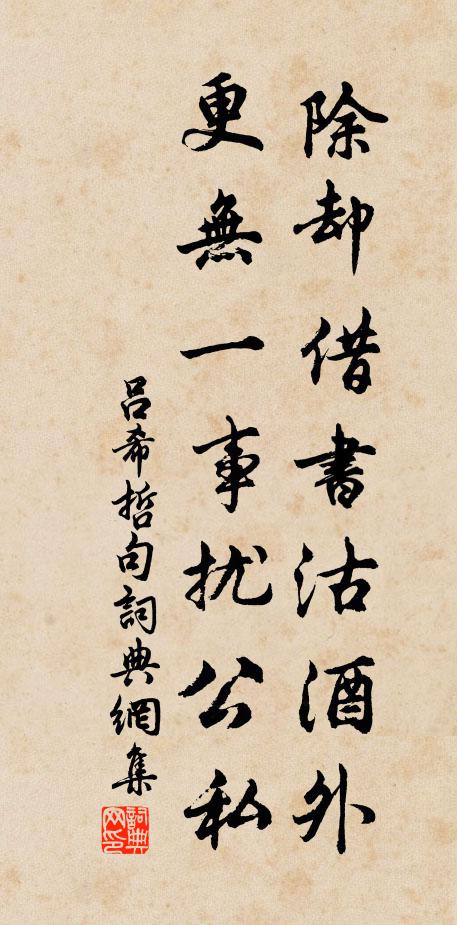 除却借書沽酒外
更無一事扰公私
吕希哲句詞典網集
詞典网印